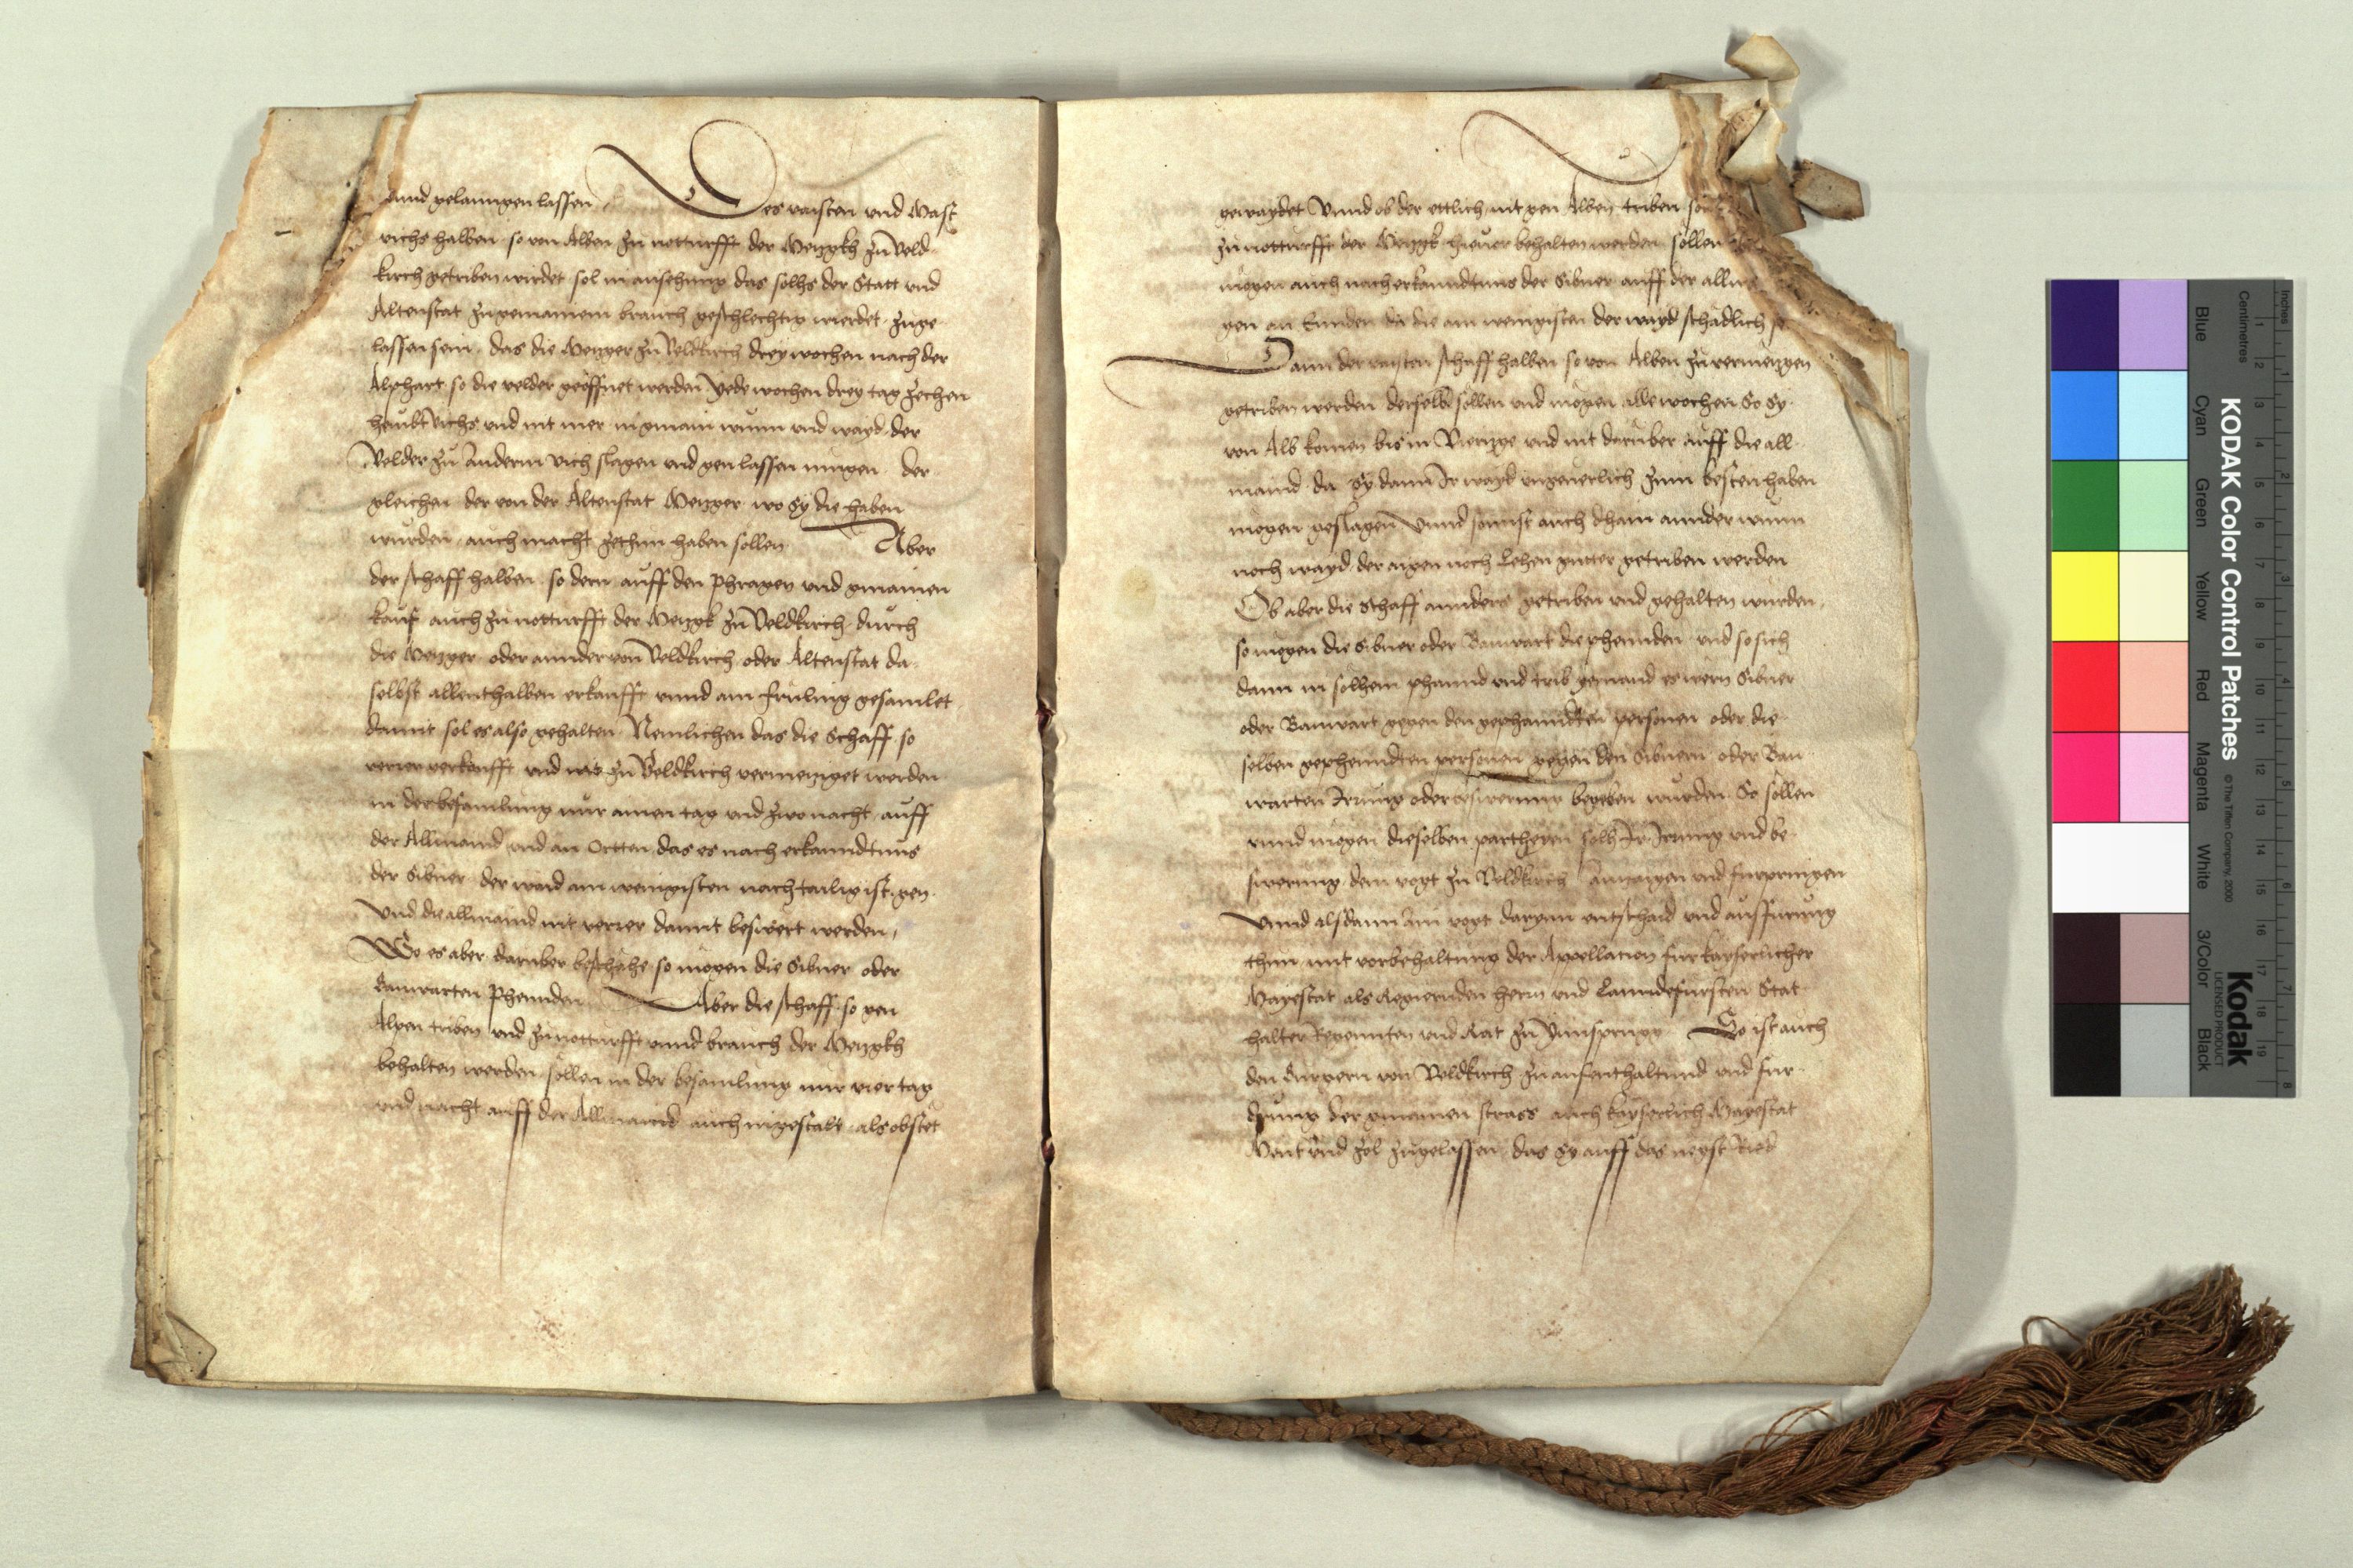 unnd gelanngen lassen. Des raisten und Mast
vichs halben so von Alben zu notturfft der Metzgkh zu Veld
kirch getriben wirdet sol in ansehung das solhs der Statt und
Altenstat zu gemainem brauch geschlechtig wierdet zuge
lassen sein, das die Metzger zu Veldkirch drey wochen nach der
Alphart so die velder geöffnet werden yede wochen drey tag zechen
haubt vichs und nit mer in gmain wunn und wayd der
Velder zu anderm vich slagen und gen lassen mugen der
gleichen der von der Altenstat Metzger wo Sy die haben
wurden auch macht zethun haben sollen Aber
der schaff halben so dern auff den Phragen und gmainen
kauf auch zu notturfft der Metzgk zu Veldkirch durch
die Metzger oder annder von Veldkirch oder Altenstat da
selbst allenthalben erkaufft unnd am Fruling gesamlet
damit sol es also gehalten Nemlichen das die Schaff so
verrer verkaufft und nit zu Veldkirch vermetzget werden
in der besamlung nur ainen tag und zwo nacht auff
der Allmaind und an Ortten das es nach erkanndtnus
der Sibner der waid am wenigisten nachtailig ist, gen
Und die allmaind nit verrer damit beswert werden,
Wo es aber daruber beschähe so mögen die Sibner oder
Banwarten Phennden Aber die schaff so gen
Alpen triben und zu notturfft unnd brauch der Metzgkh
behalten werden sollen in der besamlung nur vier tag
und nacht auff der Allmaind auch in gestalt als obstet
gewaydet Unnd ob der ettlich nit gen Alben triben
zu notturfft der Metzgk hieuor behalten werden sollen
mögen auch nach erkanndtnus der Sibner auff der
gen an Ennden da die am wenigisten der wayd schädlich
Dann der raisten schaff halben so von Alben zu vermetzgen
getriben werden derselb sollen und mögen alle wochen So Sy
von Alb komen bis in Viertzge und nit daruber auff die all
maind da Sy dann Ir wayd ungeuerlich zum besten haben
mögen geslagen Unnd sonnst auch khain annder wunn
noch wayd der aigen noch Lehen gutter getriben werden
Ob aber die Schaff annders getriben und gehalten wurden,
so mögen die Sibner oder Banwart die phennden und so sich
dann in solhem phannd und trib yemand es wern Sibner
oder Banwart gegen den gephanndten personen oder die
selben gephenndten personen gegen den Sibnern oder Ban
warten Irrung oder beswerung begeben wurden So sollen
unnd mögen dieselben partheyen solh Ir Irrung und be
swerung dem vogt zu Veldkirch anzaigen und furpringen
Unnd alsdann ain vogt darynn entschaid und ausfurung
thun mit vorbehaltung der Appellacion fur kayserlicher
Mayestat als Regiernden herrn und Lanndsfursten Stat
halter Regennten und Rat zu Ynnsprugg So ist auch
den Burgern von Veldkirch zu aufenthaltund und fur
drung der gmainen strass auch kayserlich Mayestat
Maut und Zol zugelassen, das Sy auff das negst Ried